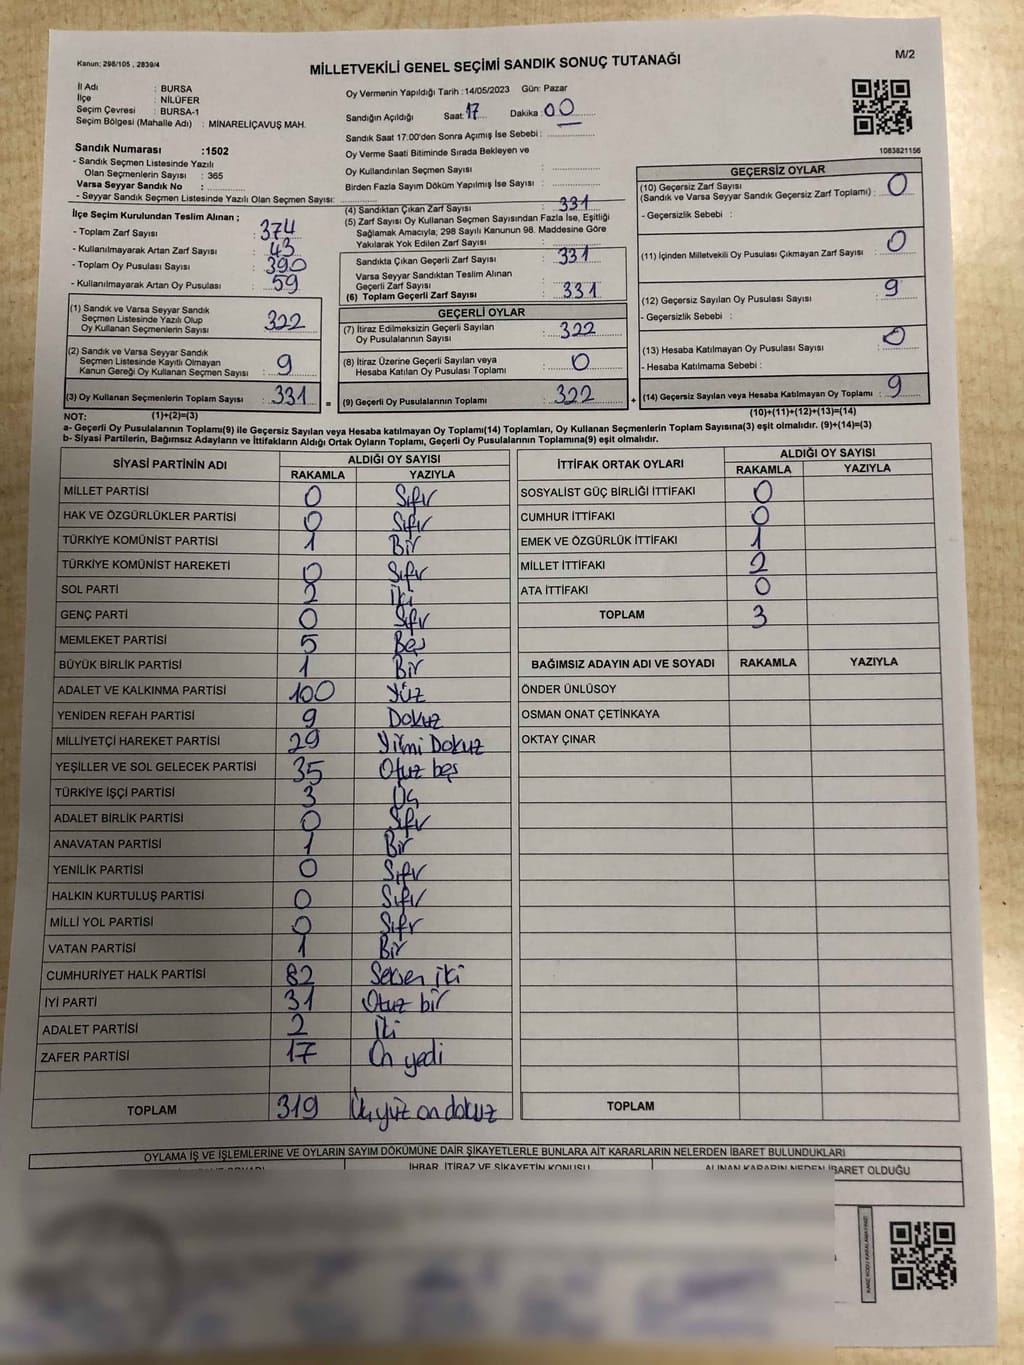 Kanun: 298/105 , 2839/4
M/2
MİLLETVEKİLİ GENEL SEÇİMİ SANDIK SONUÇ TUTANAĞI
İl Adı : BURSA
İlçe : NİLÜFER
Seçim Çevresi : BURSA-1
Seçim Bölgesi (Mahalle Adı) : MINARELİÇAVUŞ MAH.
Sandık Numarası :1502
- Sandık Seçmen Listesinde Yazılı
Olan Seçmenlerin Sayısı : 365
Varsa Seyyar Sandık No :
- Seyyar Sandık Seçmen Listesinde Yazılı Olan Seçmen Sayısı:
Oy Vermenin Yapıldığı Tarih :14/05/2023 Gün: Pazar
Sandığın Açıldığı Saat: 17 Dakika : 00
Sandık Saat 17:00'den Sonra Açımış İse Sebebi :
Oy Verme Saati Bitiminde Sırada Bekleyen ve
Oy Kullandırılan Seçmen Sayısı :
Birden Fazla Sayım Döküm Yapılmış İse Sayısı :
1083821156
İlçe Seçim Kurulundan Teslim Alınan ;
- Toplam Zarf Sayısı : 374
- Kullanılmayarak Artan Zarf Sayısı : 43
- Toplam Oy Pusulası Sayısı : 390
- Kullanılmayarak Artan Oy Pusulası : 59
(1) Sandık ve Varsa Seyyar Sandık
Seçmen Listesinde Yazılı Olup
Oy Kullanan Seçmenlerin Sayısı : 322
(2) Sandık ve Varsa Seyyar Sandık
Seçmen Listesinde Kayıtlı Olmayan
Kanun Gereği Oy Kullanan Seçmen Sayısı : 9
(3) Oy Kullanan Seçmenlerin Toplam Sayısı : 331 =
(4) Sandıktan Çıkan Zarf Sayısı : 331
(5) Zarf Sayısı Oy Kullanan Seçmen Sayısından Fazla İse, Eşitliği
Sağlamak Amacıyla; 298 Sayılı Kanunun 98. Maddesine Göre
Yakılarak Yok Edilen Zarf Sayısı :
Sandıkta Çıkan Geçerli Zarf Sayısı : 331
Varsa Seyyar Sandıktan Teslim Alınan
Geçerli Zarf Sayısı :
(6) Toplam Geçerli Zarf Sayısı : 331
GEÇERLİ OYLAR
(7) İtiraz Edilmeksizin Geçerli Sayılan
Oy Pusulalarının Sayısı : 322
(8) İtiraz Üzerine Geçerli Sayılan veya
Hesaba Katılan Oy Pusulası Toplamı : 0
(9) Geçerli Oy Pusulalarının Toplamı : 322 +
GEÇERSİZ OYLAR
(10) Geçersiz Zarf Sayısı
(Sandık ve Varsa Seyyar Sandık Geçersiz Zarf Toplamı) : 0
- Geçersizlik Sebebi :
(11) İçinden Milletvekili Oy Pusulası Çıkmayan Zarf Sayısı : 0
(12) Geçersiz Sayılan Oy Pusulası Sayısı : 9
- Geçersizlik Sebebi :
(13) Hesaba Katılmayan Oy Pusulası Sayısı : 0
- Hesaba Katılmama Sebebi :
(14) Geçersiz Sayılan veya Hesaba Katılmayan Oy Toplamı : 9
NOT: (1)+(2)=(3) (10)+(11)+(12)+(13)=(14)
a- Geçerli Oy Pusulalarının Toplamı(9) ile Geçersiz Sayılan veya Hesaba katılmayan Oy Toplamı(14) Toplamları, Oy Kullanan Seçmenlerin Toplam Sayısına(3) eşit olmalıdır. (9)+(14)=(3)
b- Siyasi Partilerin, Bağımsız Adayların ve İttifakların Aldığı Ortak Oyların Toplamı, Geçerli Oy Pusulalarının Toplamına(9) eşit olmalıdır.
SİYASİ PARTİNİN ADI ALDIĞI OY SAYISI
RAKAMLA YAZIYLA
MİLLET PARTİSİ 0 Sıfır
HAK VE ÖZGÜRLÜKLER PARTİSİ 0 Sıfır
TÜRKİYE KOMÜNİST PARTİSİ 1 Bir
TÜRKİYE KOMÜNİST HAREKETİ 0 Sıfır
SOL PARTİ 2 İki
GENÇ PARTİ 0 Sıfır
MEMLEKET PARTİSİ 5 Beş
BÜYÜK BİRLİK PARTİSİ 1 Bir
ADALET VE KALKINMA PARTİSİ 100 Yüz
YENİDEN REFAH PARTİSİ 9 Dokuz
MİLLİYETÇİ HAREKET PARTİSİ 29 Yirmi Dokuz
YEŞİLLER VE SOL GELECEK PARTİSİ 35 Otuz beş
TÜRKİYE İŞÇİ PARTİSİ 3 Üç
ADALET BİRLİK PARTİSİ 0 Sıfır
ANAVATAN PARTİSİ 1 Bir
YENİLİK PARTİSİ 0 Sıfır
HALKIN KURTULUŞ PARTİSİ 0 Sıfır
MİLLİ YOL PARTİSİ 0 Sıfır
VATAN PARTİSİ 1 Bir
CUMHURİYET HALK PARTİSİ 82 Seksen iki
İYİ PARTİ 31 Otuz bir
ADALET PARTİSİ 2 İki
ZAFER PARTİSİ 17 On yedi
TOPLAM 319 Üçyüz on dokuz
İTTİFAK ORTAK OYLARI ALDIĞI OY SAYISI
RAKAMLA YAZIYLA
SOSYALİST GÜÇ BİRLİĞİ İTTİFAKI 0
CUMHUR İTTİFAKI 0
EMEK VE ÖZGÜRLÜK İTTİFAKI 1
MİLLET İTTİFAKI 2
ATA İTTİFAKI 0
TOPLAM 3
BAĞIMSIZ ADAYIN ADI VE SOYADI RAKAMLA YAZIYLA
ÖNDER ÜNLÜSOY
OSMAN ONAT ÇETİNKAYA
OKTAY ÇINAR
TOPLAM
OYLAMA İŞ VE İŞLEMLERİNE VE OYLARIN SAYIM DÖKÜMÜNE DAİR ŞİKAYETLERLE BUNLARA AİT KARARLARIN NELERDEN İBARET BULUNDUKLARI
İHBAR, İTİRAZ VE ŞİKAYETİN KONUSU ALINAN KARARIN NEDEN İBARET OLDUĞU